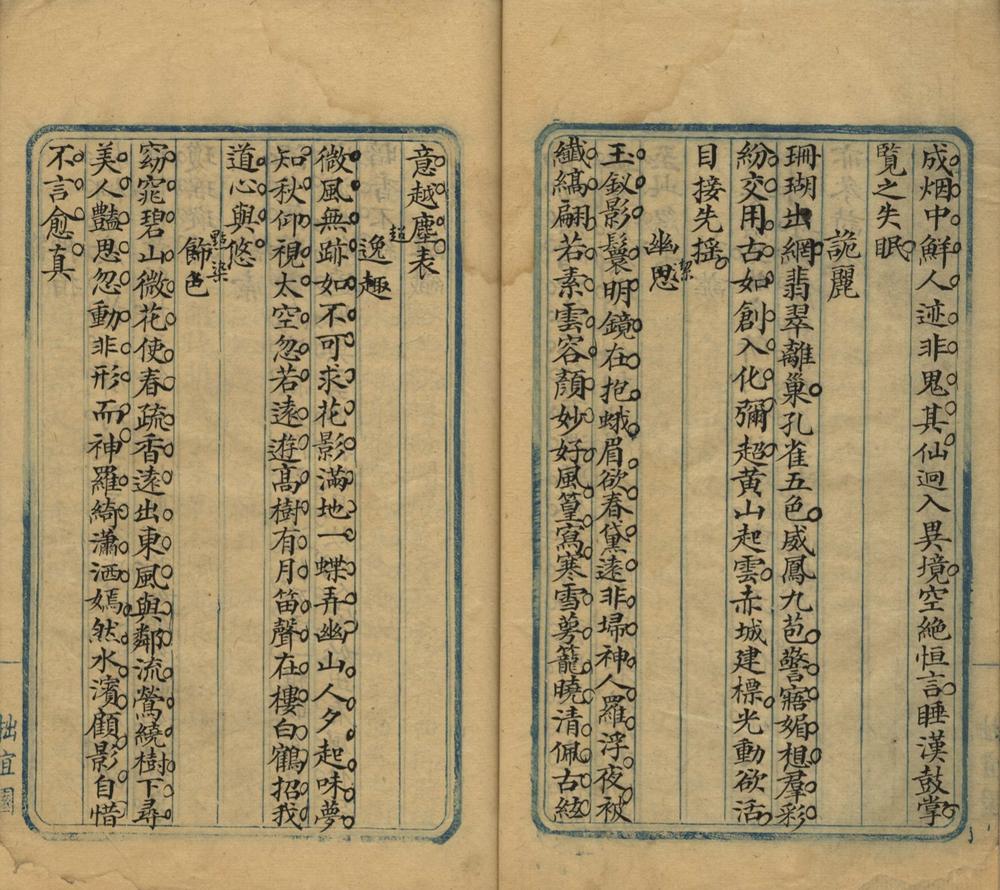 成烟中鮮人迹非鬼其仙迥入異境空絶恒言睡漢鼓掌
覧之失眠
詭麗
珊瑚出網翡翠離巢孔雀五色威鳳九苞警寤媚想羣彩
紛交用古如創入化彌超黃山起雲赤城建標光動欲活
目接先摇
幽思
潔
玉釵影鬟明鏡在抱蛾眉欲春黛遠非埽神人羅浮夜被
纖縞翩若素雲容顏妙好風篁寫寒雪夢籠曉清佩古絃
意越塵表
逸趣
超
微風無跡如不可求花影滿地一蝶弄幽山人夕起味夢
知秋仰視太空忽若遠遊高樹有月笛聲在樓白鶴招我
道心與悠
飾色
點染
窈窕碧山微花使春疏香遠出東風與鄰流鶯繞樹下尋
美人豔思忽動非形而神羅綺瀟洒嫣然水濱顧影自惜
不言愈真
拙宜園